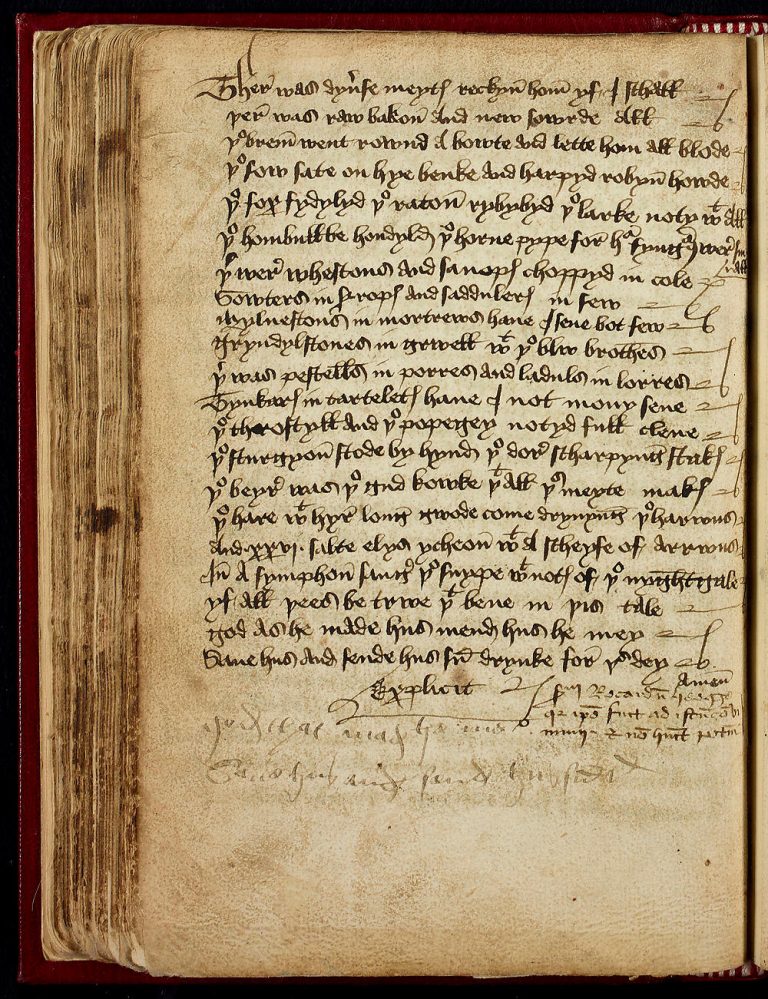 Ther was dyuerse meytes rechyn hom yf I schall
þer was raw bakon and new sowrde all
þe brem went rownd abowte and lette hom all blode
þe sow sate on hye benke and harpyd robyn howde
þe fox fydylyd þe raton rybybyd þe larke noty wt all
þe hombulbe hondyld þe horne pype for hr fyngurs wer small
þer wer whestons and fanops choppyd in cole
Sowters in sirops and saddulers in sew
mylnestons in mortrews haue I sene bot few
gryndylstones in grwell wt þe blw brothes
þr was pestells in porres and laduls in lorres
Tynkars in tartelets haue I not mony sene
þe throstyll and þe popegey notyd full clene
þe sturgyon stode by hynd þe dor scharpyng staks
þe beyr was þe gud kowke þt all þis meyte maks
þe hare wt hyr long gwode come dryuyng þe harrws
and xxvi salte elys ycheon wt a scheyfe of arrws
In a symphon sang þe snype wt nots of þe nyghtgale
yf all þees be trwe þt bene in þis tale
god as he made hus mend hus he mey
Saue hus and sende hus sū drynke for þis dey
Amen
Explicit
þer Recardū heege
qr ipō fuit ad istud